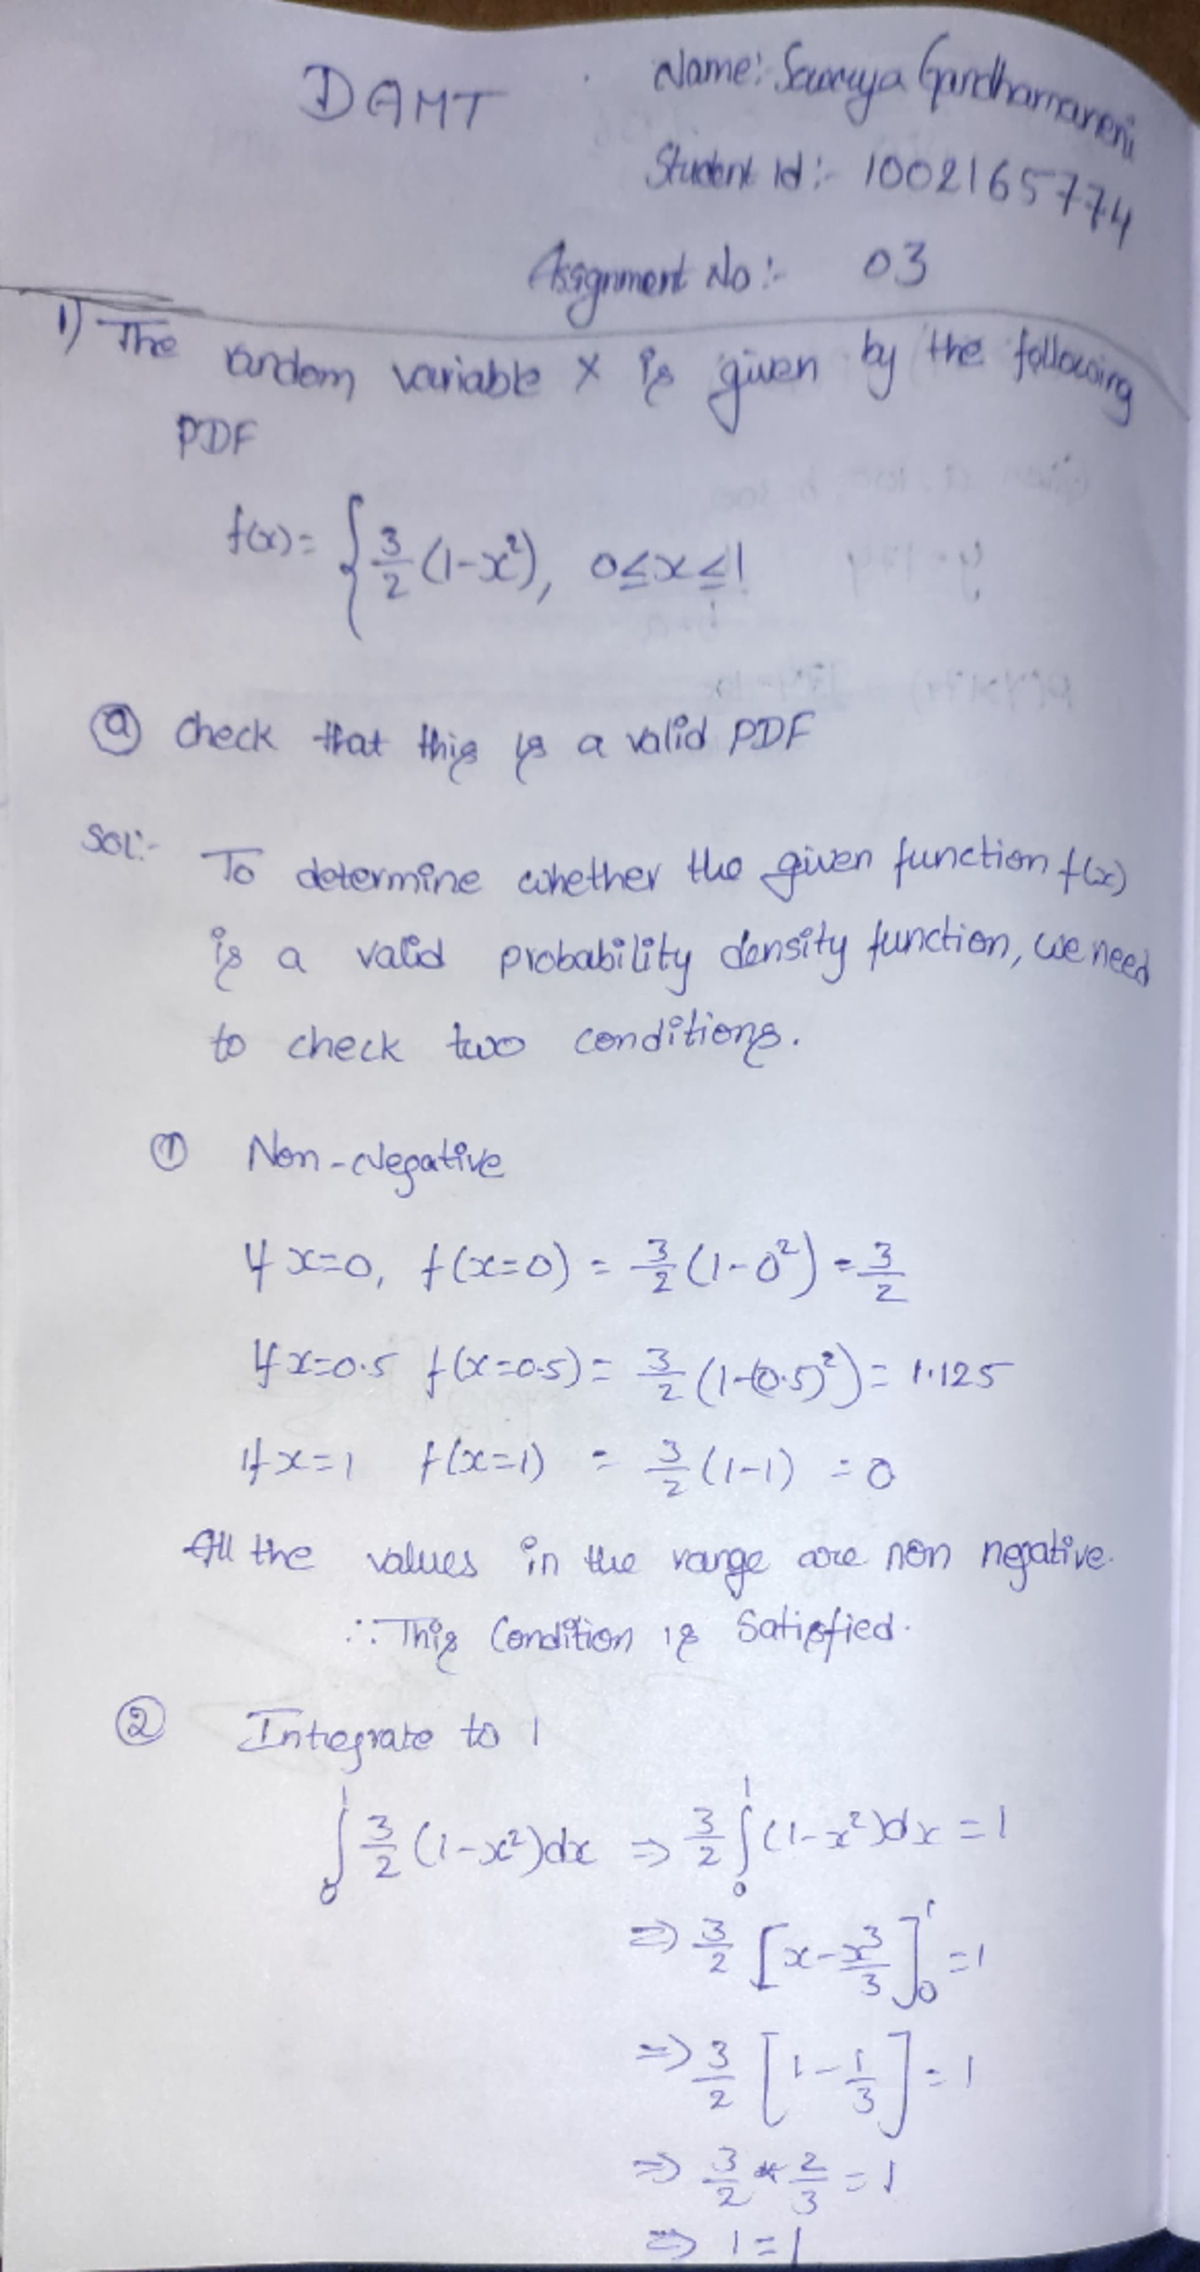 DAMT
Name:- Sawmya Gandhamaneni
Student Id:- 1002165774
Assignment No:- 03
1) The random variable X is given by the following
PDF
f(x) = { 3/2 (1-x²), 0≤x≤1
ⓐ check that this is a valid PDF
Sol:- To determine whether the given function f(x)
is a valid probability density function, we need
to check two conditions.
① Non-Negative
If x=0, f(x=0) = 3/2 (1-0²) = 3/2
If x=0.5 f(x=0.5) = 3/2 (1-(0.5)²) = 1.125
If x=1 f(x=1) = 3/2 (1-1) = 0
All the values in the range are non negative.
∴ This Condition is Satisfied.
② Integrate to 1
∫₀¹ 3/2 (1-x²)dx ⇒ 3/2 ∫₀¹ (1-x²)dx = 1
⇒ 3/2 [x - x³/3]₀¹ = 1
⇒ 3/2 [1 - 1/3] = 1
⇒ 3/2 * 2/3 = 1
⇒ 1 = 1